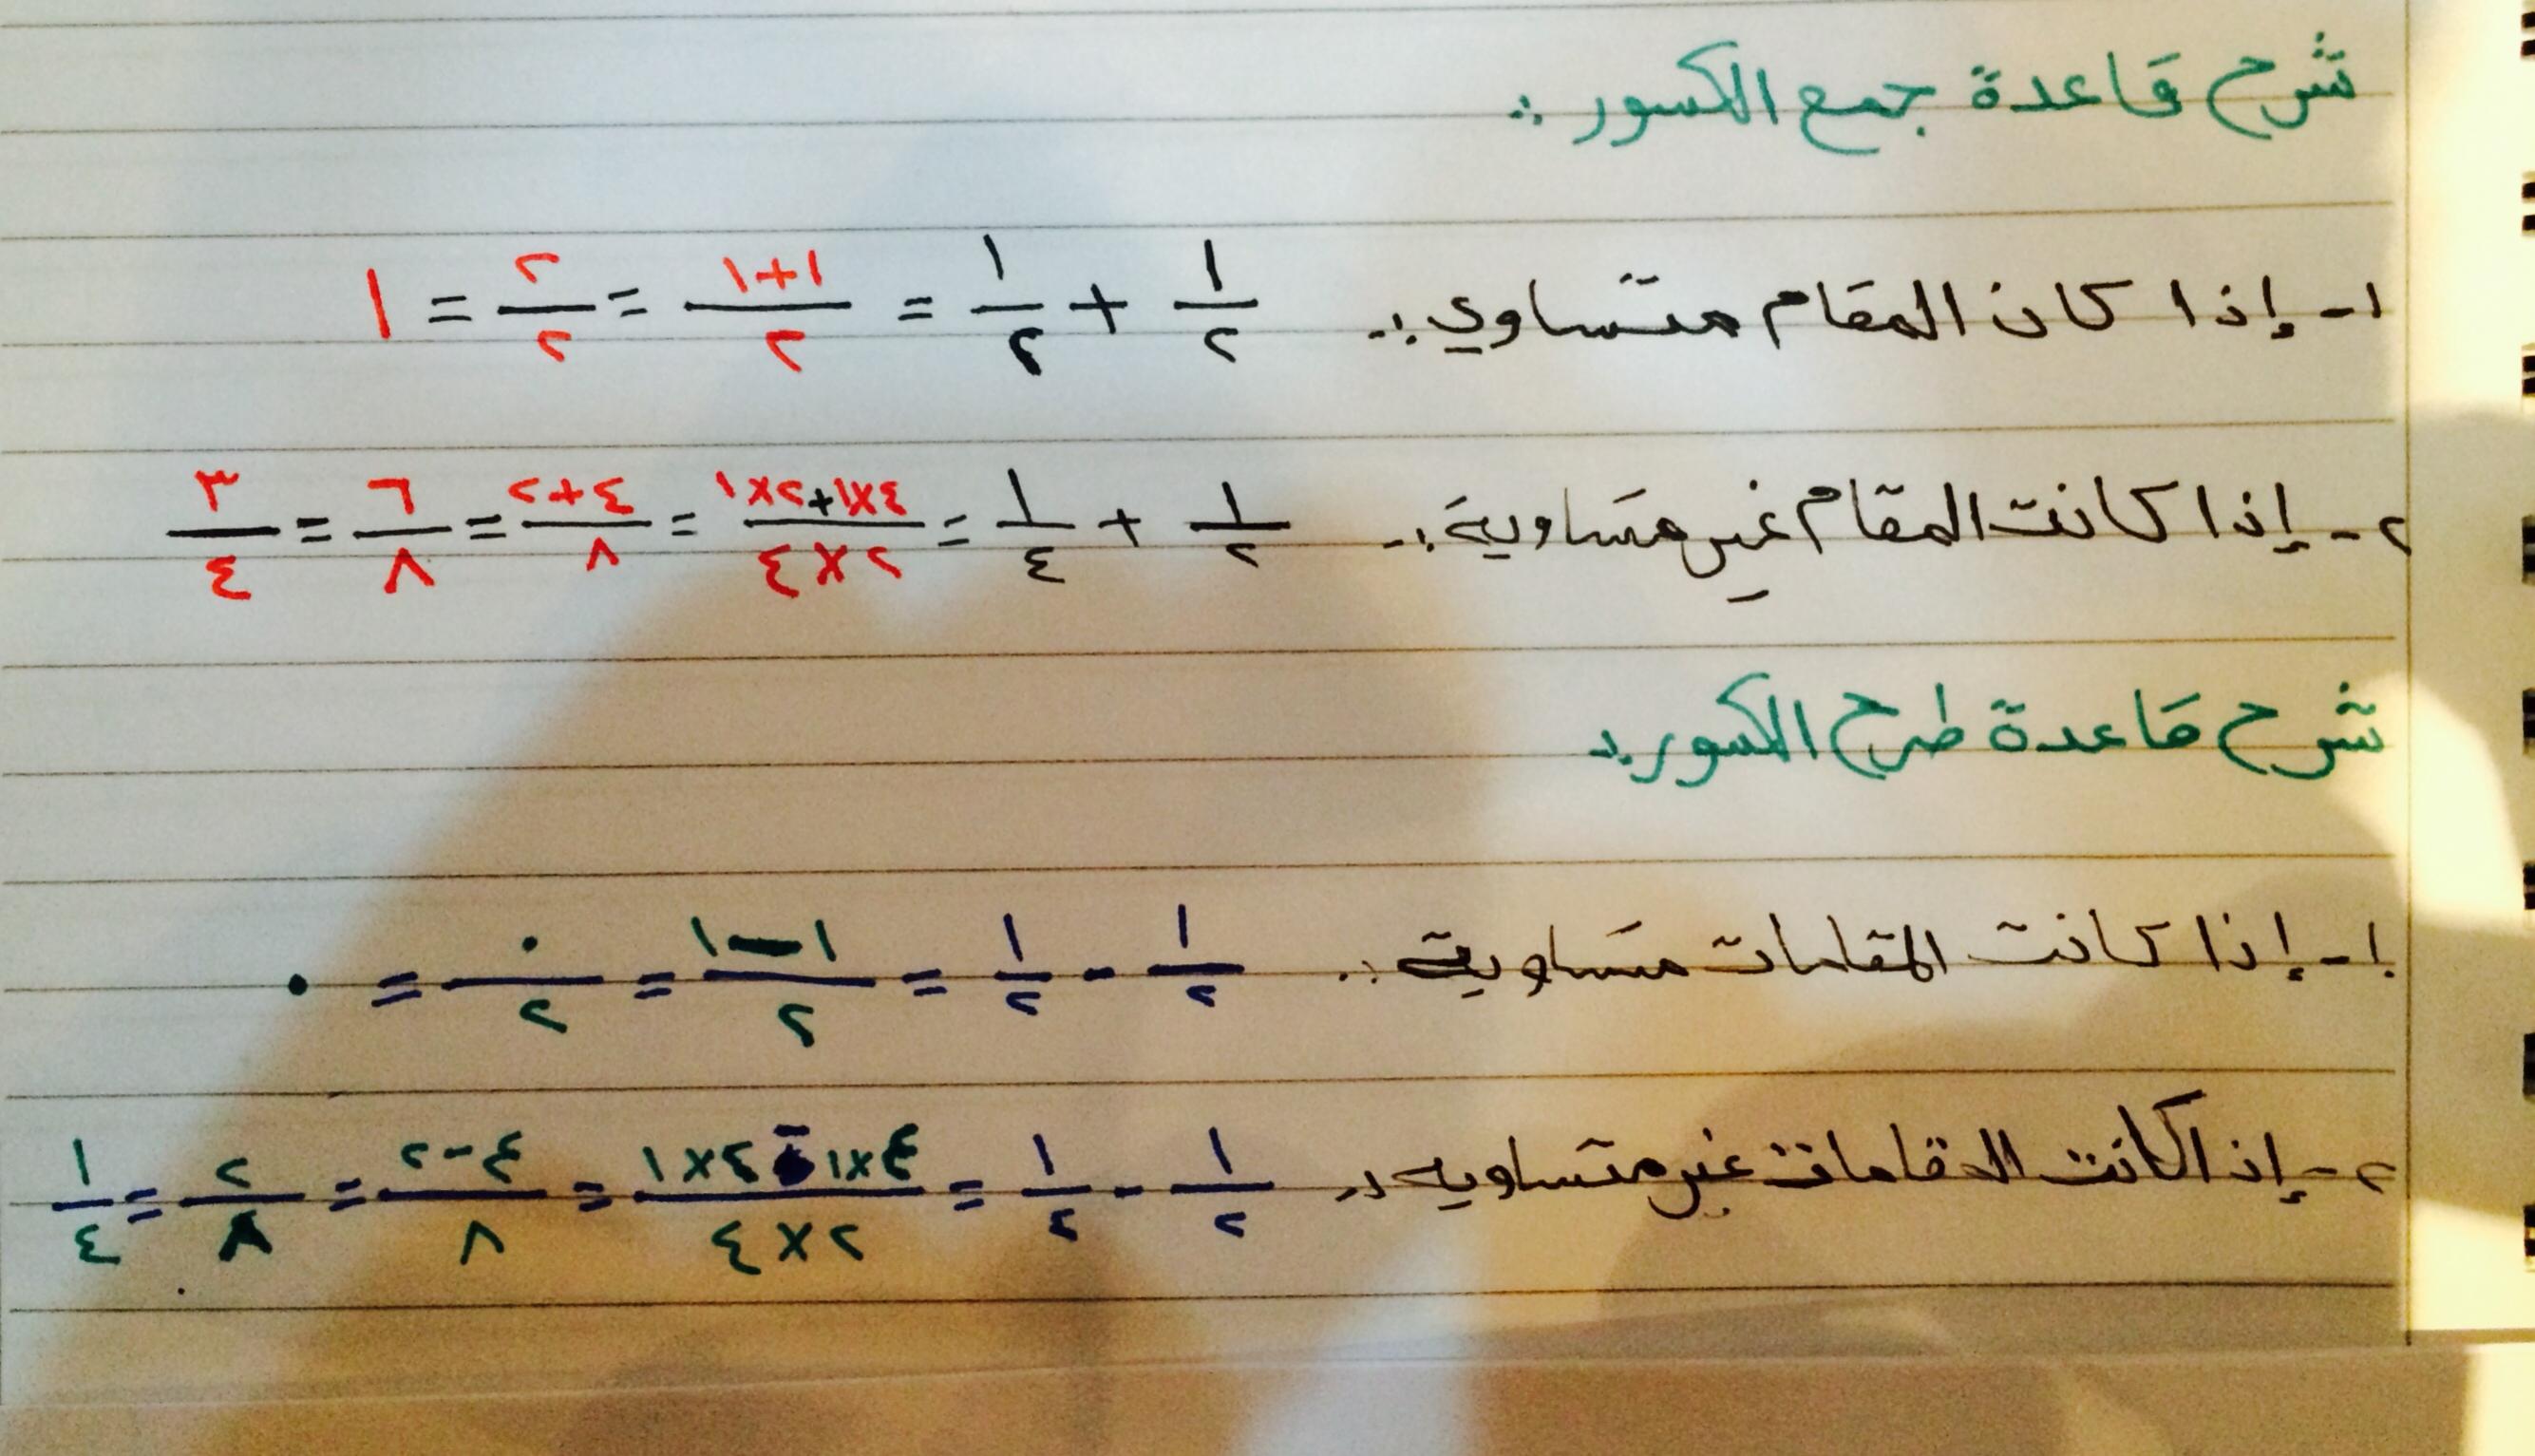 شرح قاعدة جمع الكسور :.
١- إذا كان المقام متساوي :. ١/٢ + ١/٢ = ١+١/٢ = ٢/٢ = ١
٢- إذا كانت المقام غير متساوية :. ١/٢ + ١/٤ = ٤×١+٢×١/٢×٤ = ٤+٢/٨ = ٦/٨ = ٣/٤
شرح قاعدة طرح الكسور :.
١- إذا كانت المقامات متساوية :. ١/٢ - ١/٢ = ١-١/٢ = ٠/٢ = ٠
٢- إذا كانت المقامات غير متساويه :. ١/٢ - ١/٤ = ٤×١-٢×١/٢×٤ = ٤-٢/٨ = ٢/٨ = ١/٤